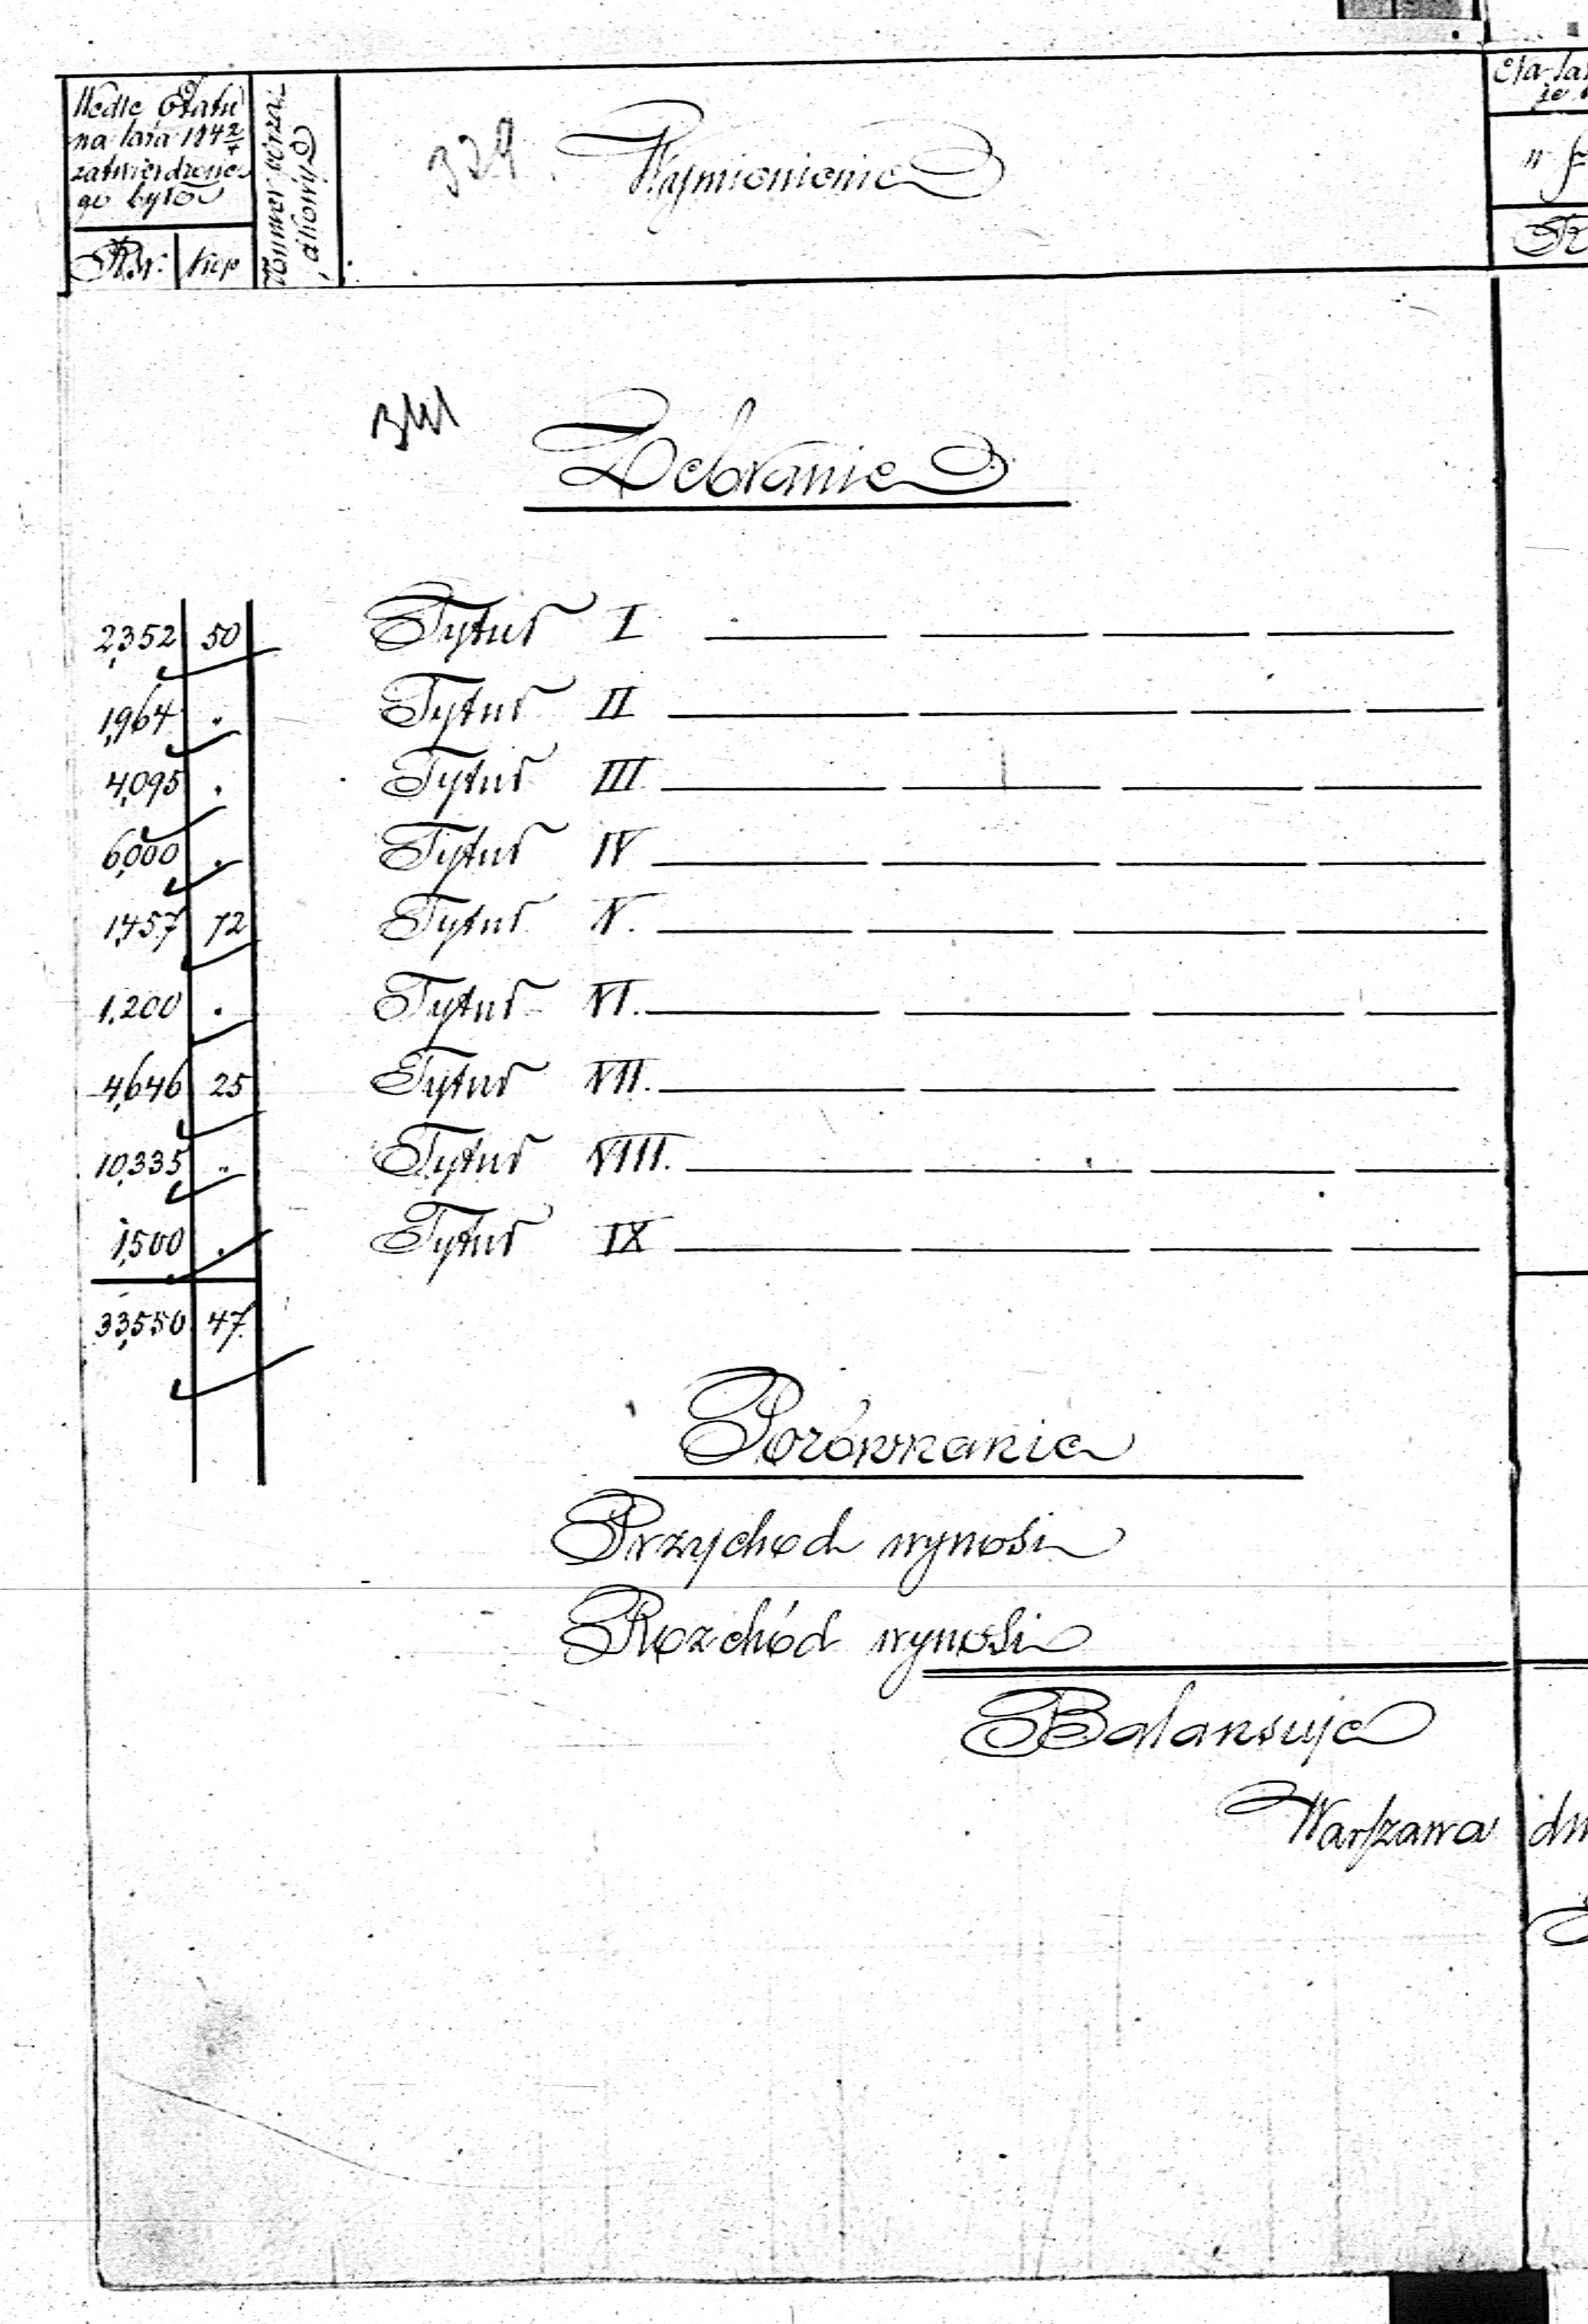 Wedle Etatu
na lata 184 2/4
zatwierdzone
go było
Rsr. Kop
Nummer porzą-
dkowy
329.
Wymienienie
Na la
R
341
Zebranie
2,352 50 Tytuł I
1,964 . Tytuł II
4,095 . Tytuł III
6,000 . Tytuł IV
1,457 72 Tytuł V.
1,200 . Tytuł VI.
4,646 25 Tytuł VII.
10,335 „ Tytuł VIII.
1,500 . Tytuł IX
33,550 47
Porównanie
Przychod wynosi
Rozchód wynosi
Balansuje
Warszawa dn